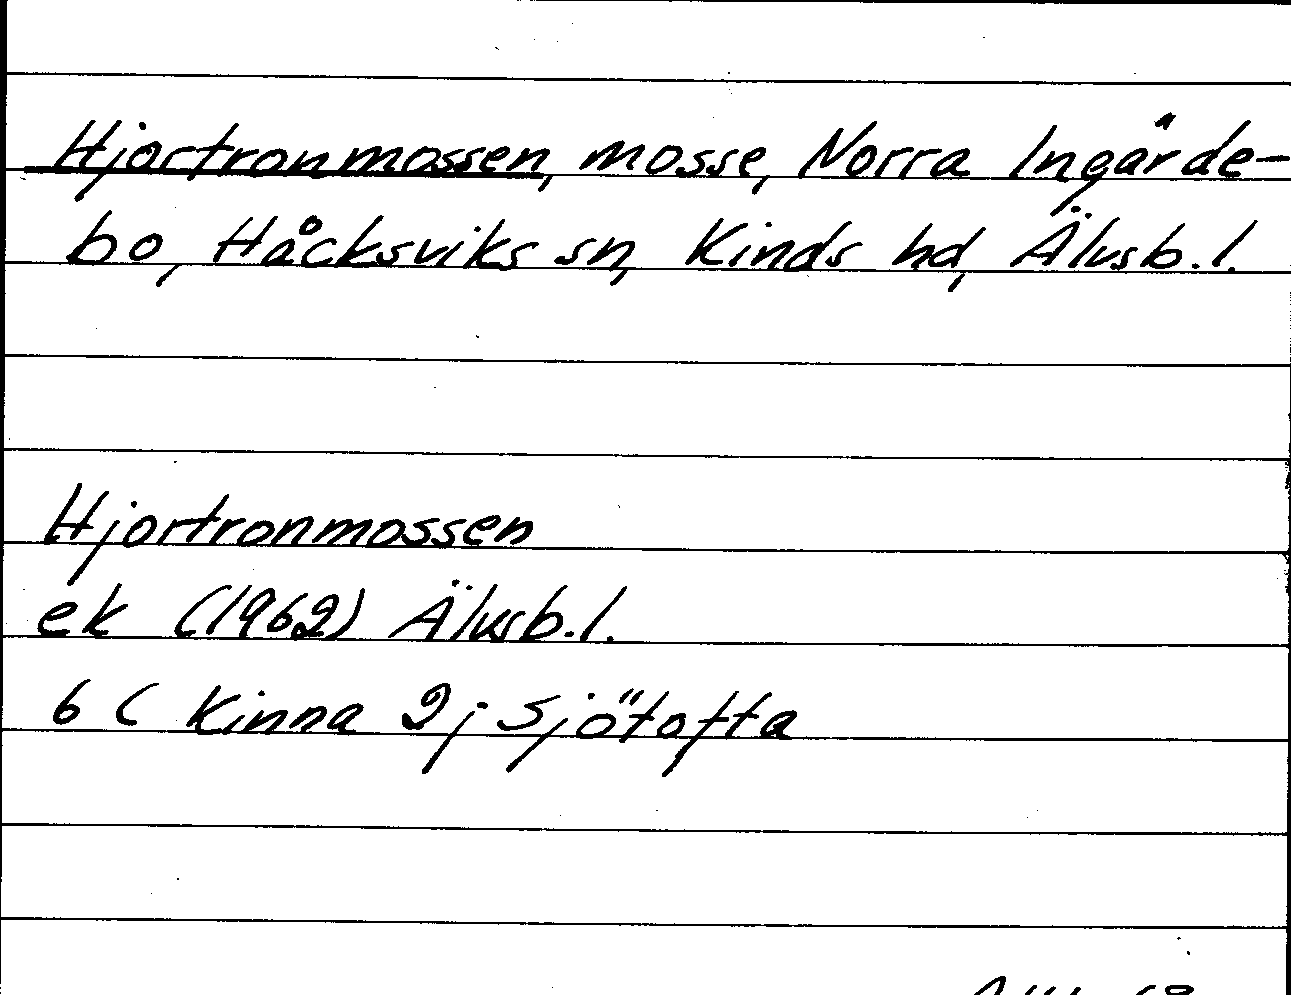 Hjortronmossen, mosse, Norra Ingärde-
bo, Håcksviks sn, Kinds hd, Älvsb.l.
Hjortronmossen
ek (1962) Älvsb.l.
6 C Kinna 2j Sjötofta